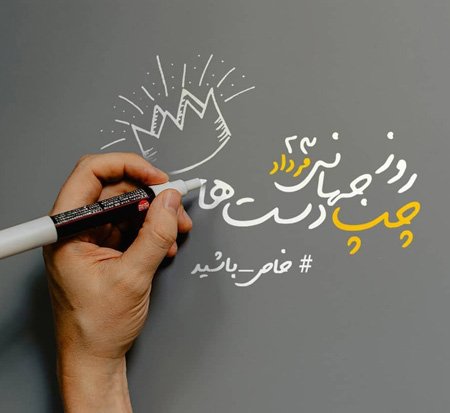 روز جهانی
۲۳ مرداد
چپ دست‌ها
# خاص_باشید